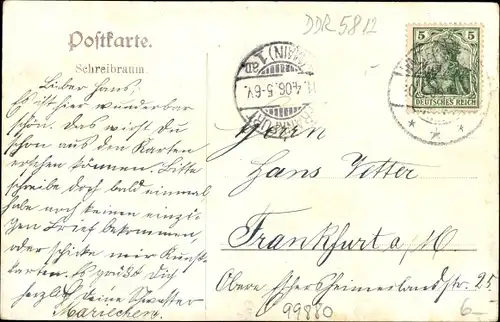 DDR 5812
Postkarte.
Schreibraum.
5 5
DEUTSCHES REICH
(MAIN) 1
4.06. 5-6 V.
Lieber Hans,
Es ist hier wunderbar
schön. Das wirst du
schon aus den Karten
ersehen können. Bitte
schreibe doch bald einmal
habe noch keinen einzi-
gen Brief bekommen,
oder schicke mir Kunst-
karten. Es grüßt Dich
herzlich Deine Schwester
Mariechen.
Herrn
Hans Vetter
Frankfurt a/M
Obere Eschersheimerlandstr. 25
99880
6-